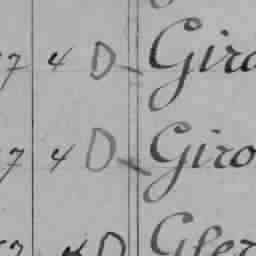 7 4 D Giro
7 4 D Giro
4 D Gler